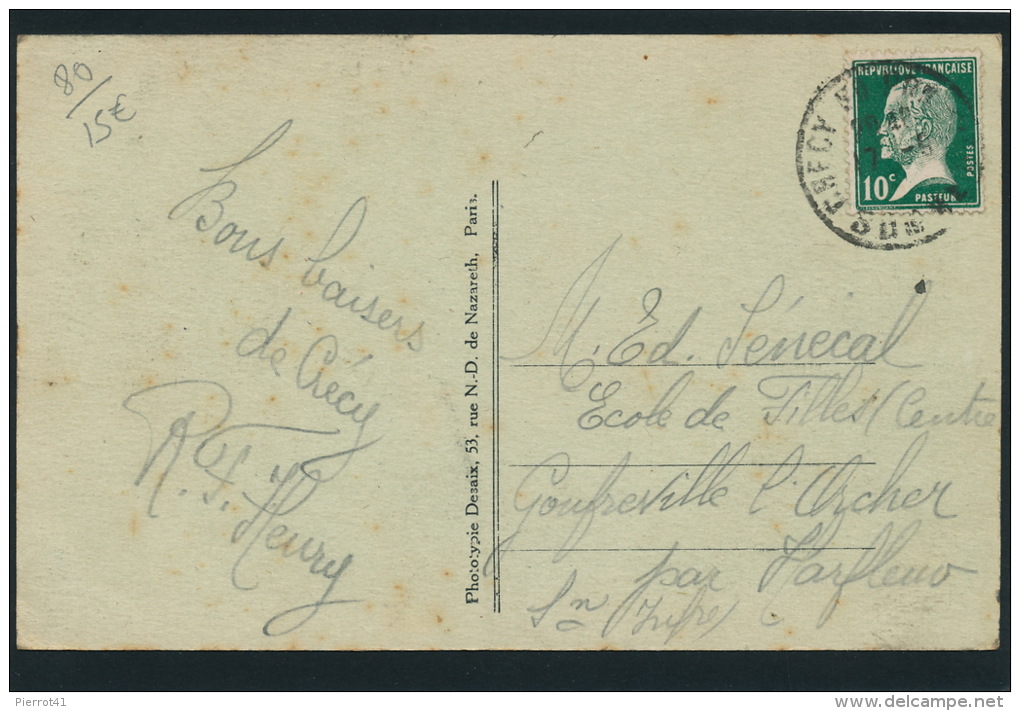 80/
15€
Bons baisers
de Crécy
R. F. Henry
Phototypie Desaix, 53, rue N.-D. de Nazareth, Paris.
REPVBLIQVE FRANÇAISE
10c
PASTEUR
POSTES
CRECY
M. Ed. Sénécal
Ecole de Filles (Centre
Gonfreville l'Orcher
par Harfleur
Sn Infre)
Pierrot41
www.delcampe.net